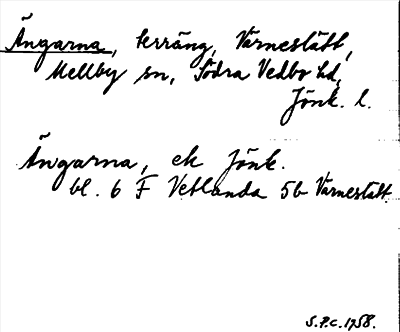 Ängarna, terräng, Värnestätt,
Mellby sn, Södra Vedbo hd,
Jönk. l.
Ängarna, ek Jönk.
bl. 6 F Vetlanda 5b Värnestätt.
S.P.C. 1958.